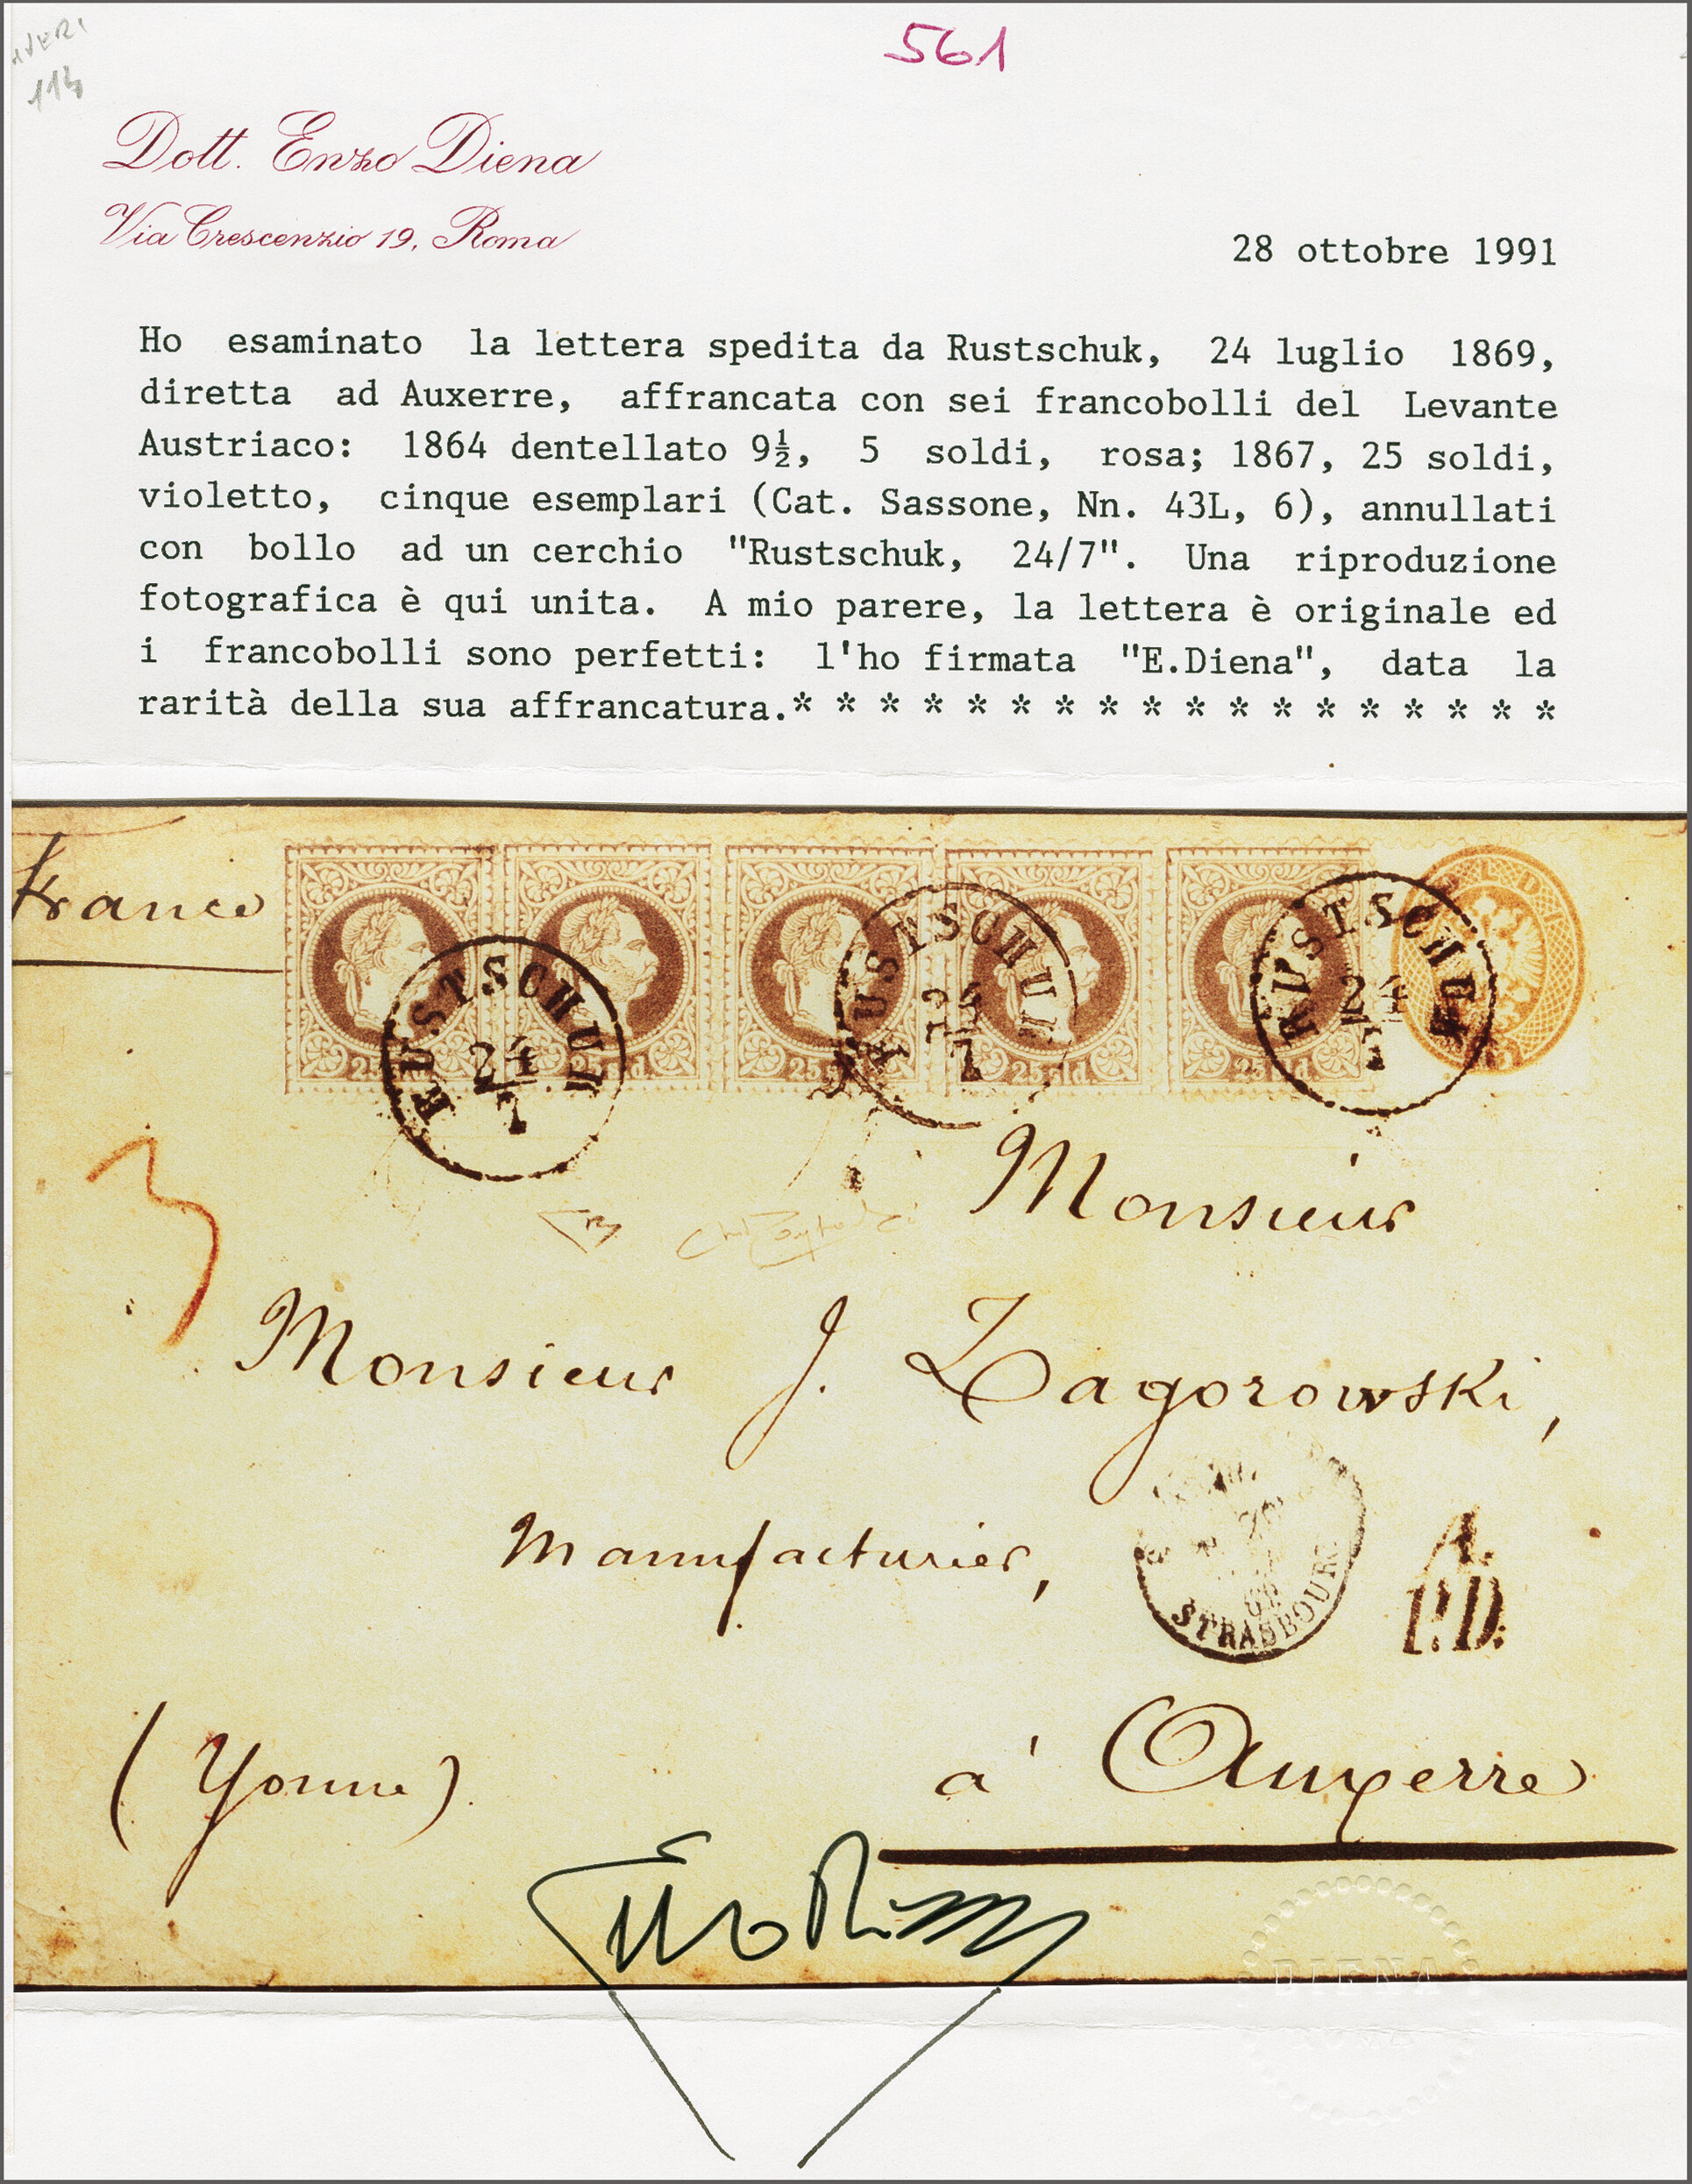 561
114
Dott. Enzo Diena
Via Crescenzio 19, Roma
28 ottobre 1991
Ho esaminato la lettera spedita da Rustschuk, 24 luglio 1869,
diretta ad Auxerre, affrancata con sei francobolli del Levante
Austriaco: 1864 dentellato 9½, 5 soldi, rosa; 1867, 25 soldi,
violetto, cinque esemplari (Cat. Sassone, Nn. 43L, 6), annullati
con bollo ad un cerchio "Rustschuk, 24/7". Una riproduzione
fotografica è qui unita. A mio parere, la lettera è originale ed
i francobolli sono perfetti: l'ho firmata "E.Diena", data la
rarità della sua affrancatura.* * * * * * * * * * * * * * * * * *
franco
RUSTSCHUK
24
7
RUSTSCHUK
24
7
RUSTSCHUK
24
7
25 sld.
25 sld.
25 sld.
25 sld.
25 sld.
3
Monsieur
Monsieur J. Zagorowski,
Manufacturier,
STRASBOURG
A.
P.D.
(Yonne).
à Auxerre
DIENA
ROMA